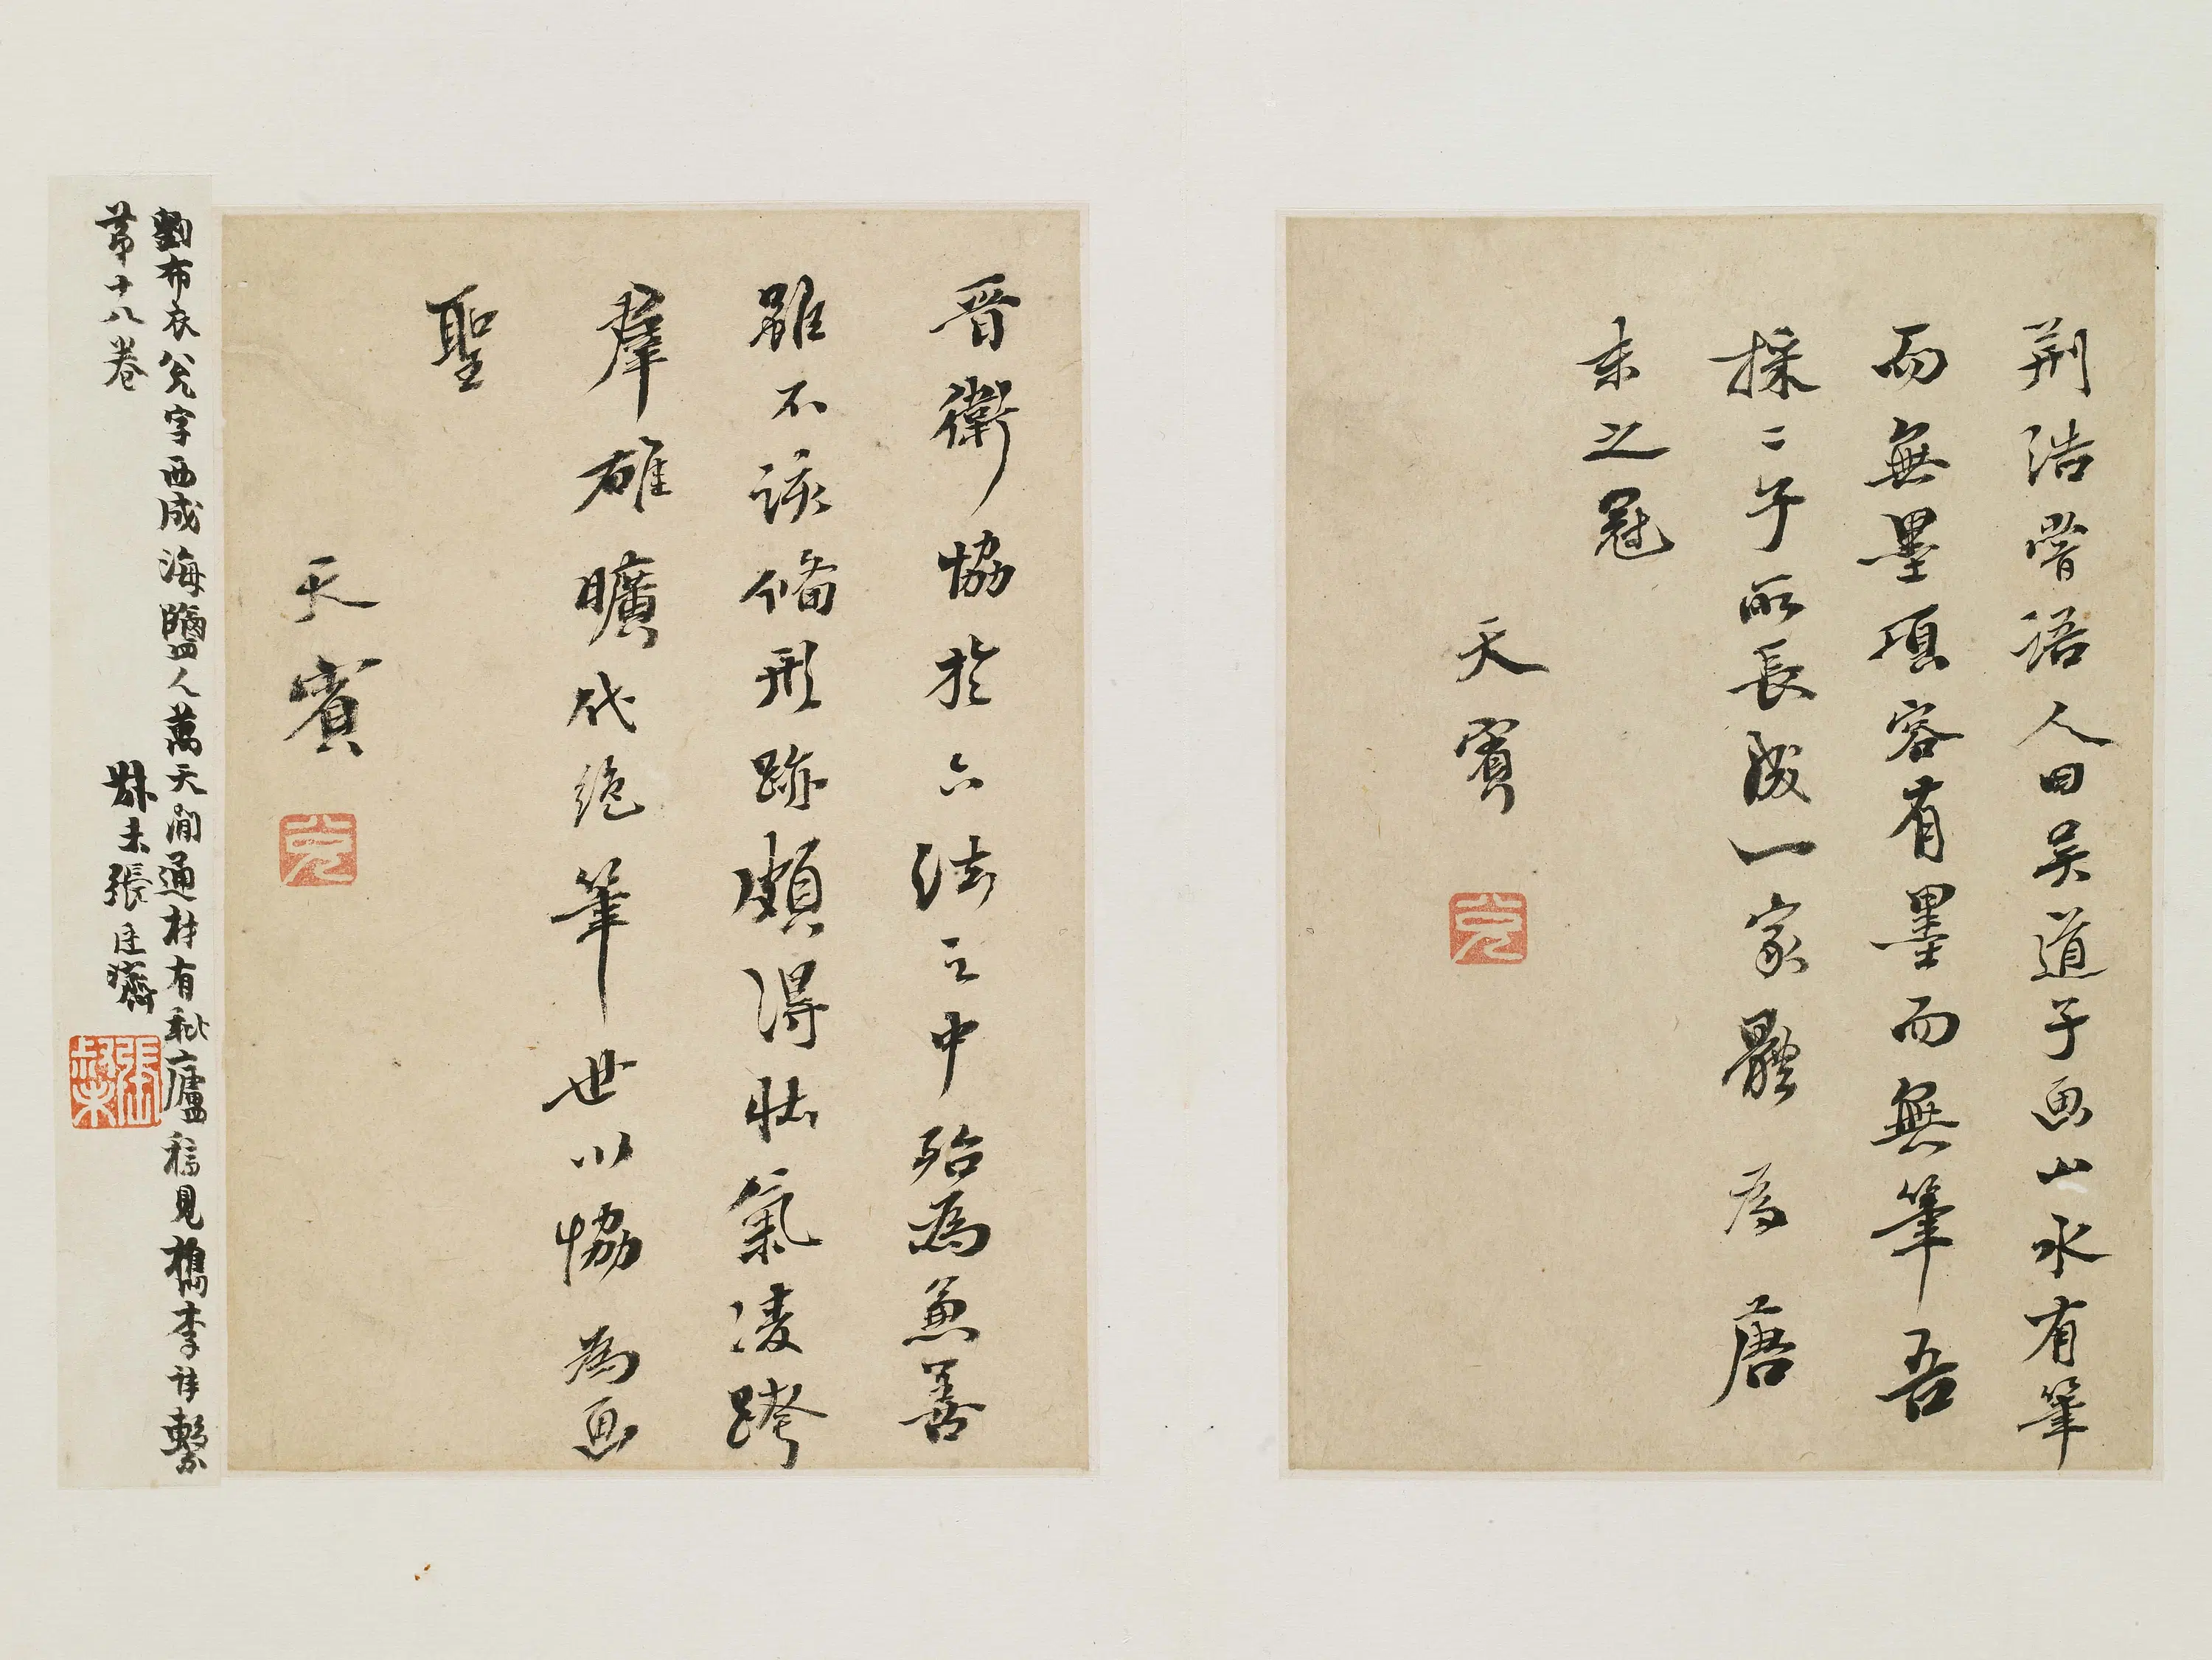 荆浩嘗語人曰吴道子画山水有筆
而無墨項容有墨而無筆吾
採二子所長成一家體為唐
末之冠
天賓
晋衛協於六法之中殆為兼善
雖不該備形跡頗得壮氣凌跨
羣雄曠代絶筆世以協為画
聖
天賓
劉布衣兊字西成海鹽人萬天㵎通村有秋廬稿見檇李詩繫
苐十八卷
叔未張廷濟
張叔未